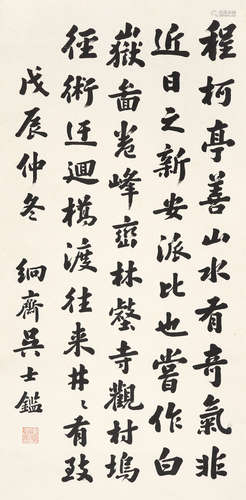 程柯亭善山水有奇氣非
近日之新安派比也嘗作白
嶽畫卷峰巒林壑寺觀村塢
徑術迂迴橋渡往来井〻有致
戊辰仲冬 絅齋吳士鑑